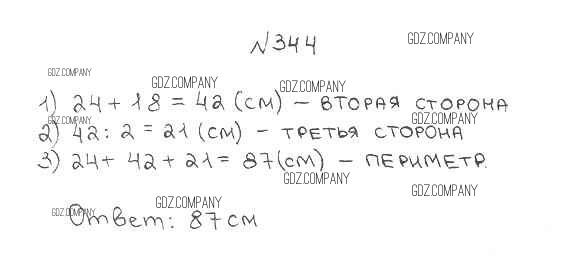 №344
GDZ.COMPANY
GDZ.COMPANY
GDZ.COMPANY
GDZ.COMPANY
1) 24 + 18 = 42 (см) – ВТОРАЯ СТОРОНА
GDZ.COMPANY
GDZ.COMPANY
2) 42 : 2 = 21 (см) – ТРЕТЬЯ СТОРОНА
3) 24 + 42 + 21 = 87 (см) – ПЕРИМЕТР.
GDZ.COMPANY
GDZ.COMPANY
GDZ.COMPANY
GDZ.COMPANY
Ответ: 87 см